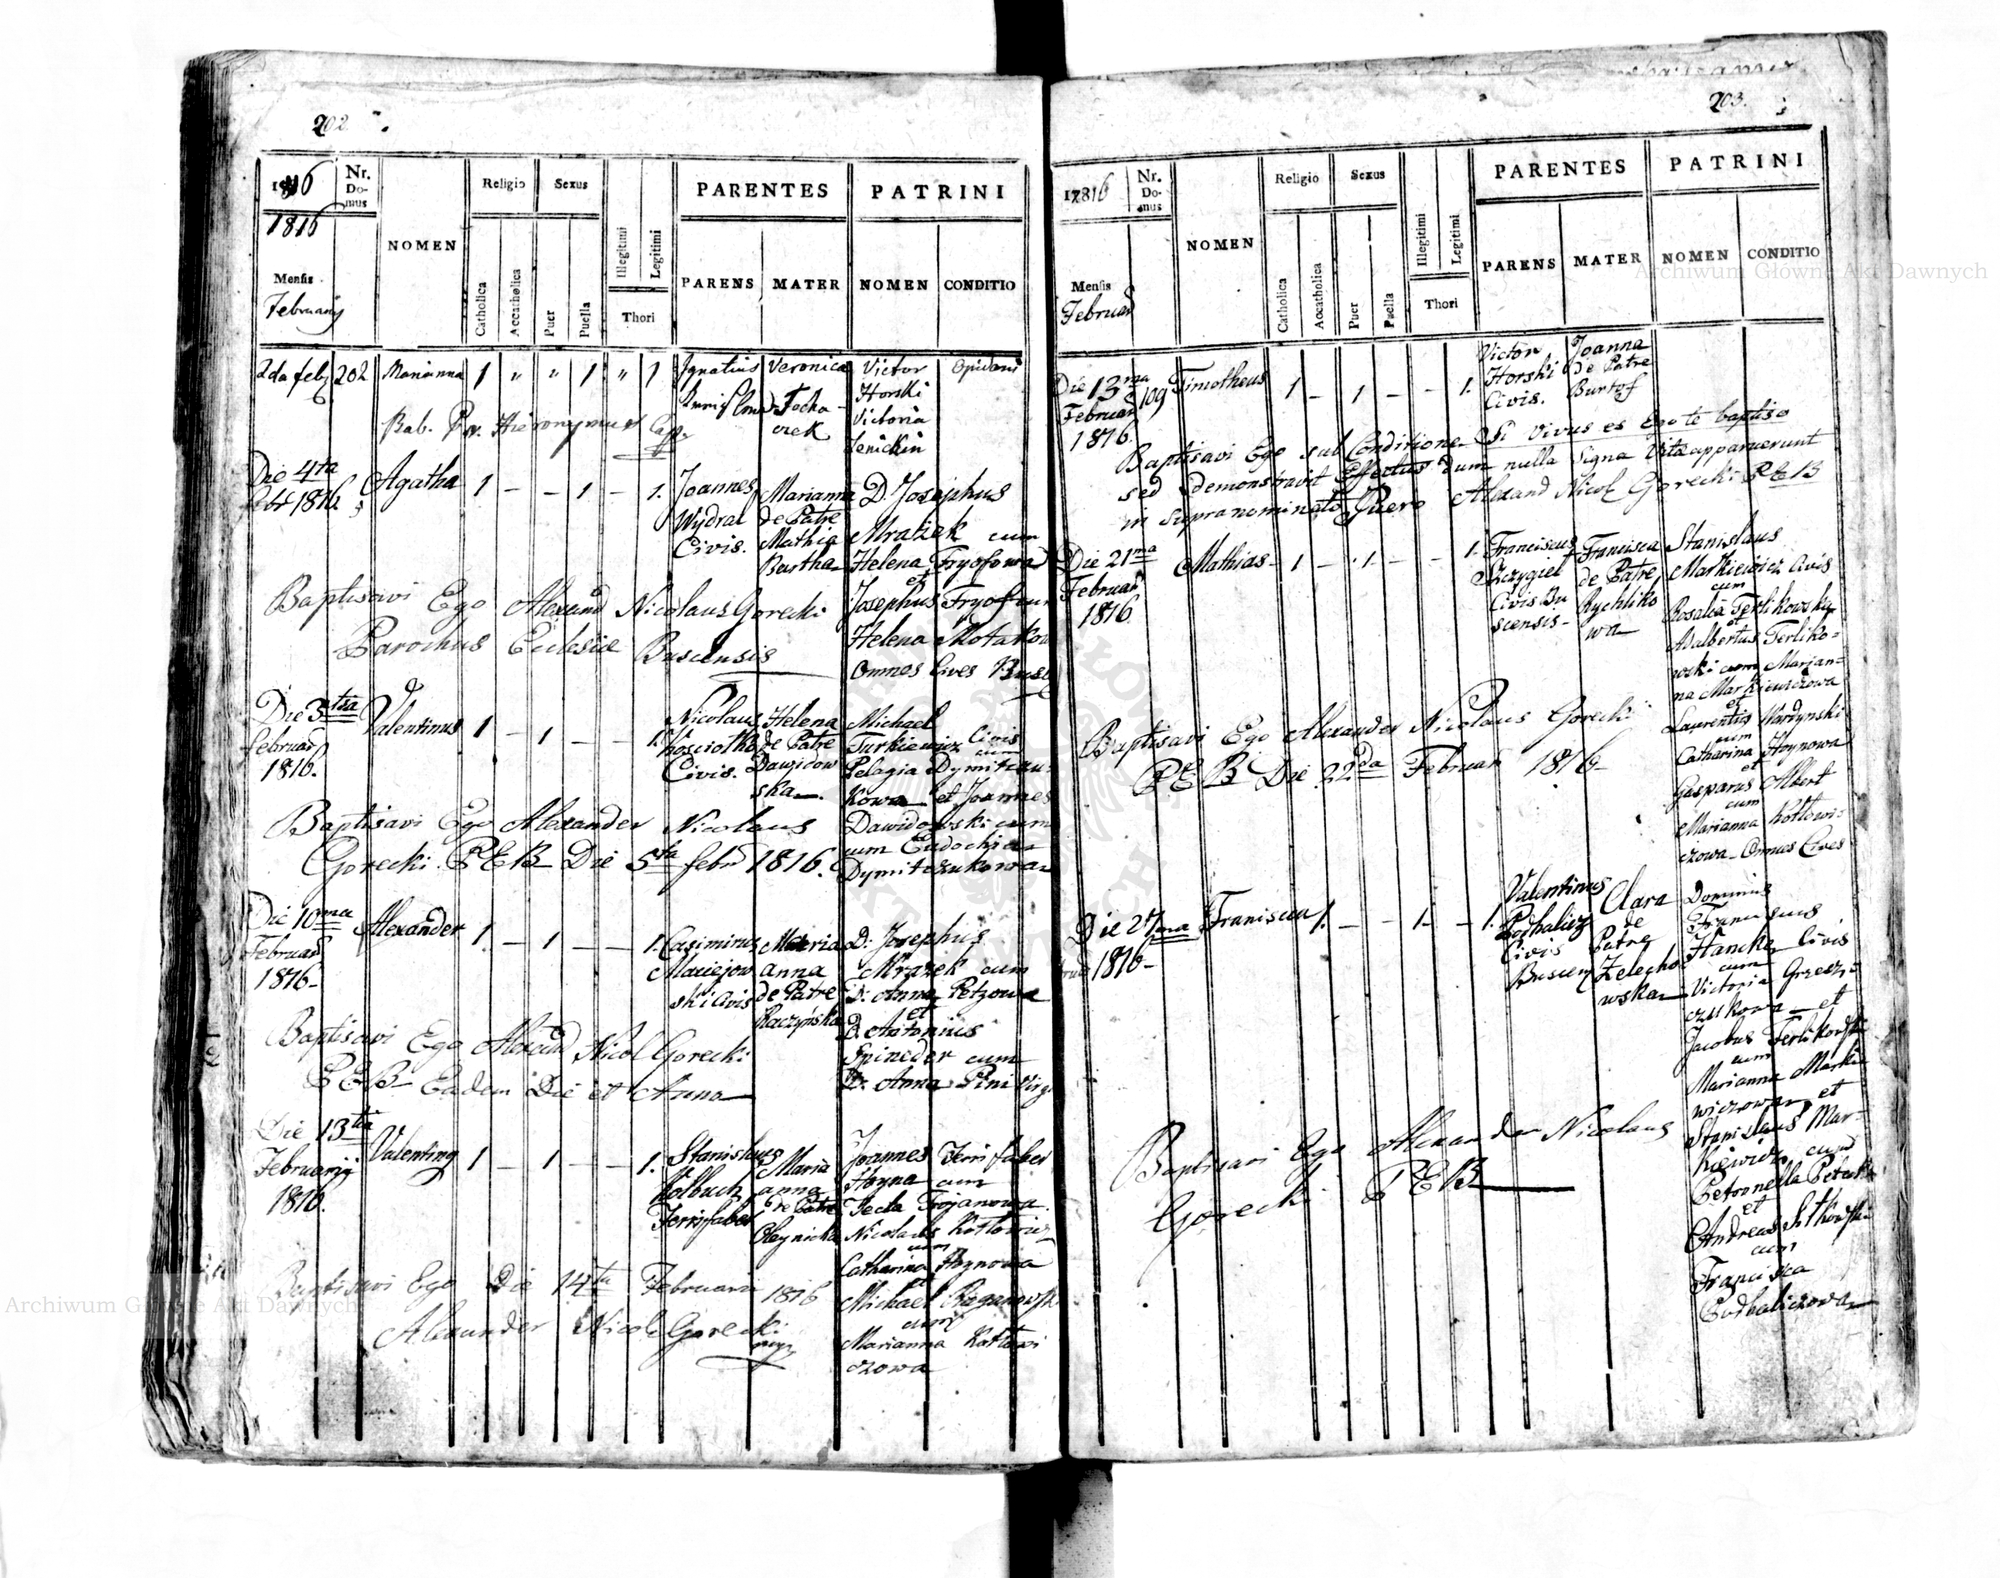 202
1816
Nr. Domus
NOMEN
Religio
Sexus
PARENTES
PATRINI
1816
Catholica
Accatholica
Puer
Puella
Illegitimi
Legitimi
Thori
PARENS
MATER
NOMEN
CONDITIO
Mensis
Februarij
2da feb 202 Marianna 1 " " 1 " 1 Ignatius Veronica Victor Opidani
Horski
Victoria
Bab. Pr. Hieronymus Cap.
Die 4ta Agatha 1 – – 1 – 1. Joannes Marianna D. Josephus
febr 1816
Wydral de Patre Mrazek cum
Civis. Mathia Helena Fryofowa
Bartha et
Baptisavi Ego Alexand Nicolaus Gorecki Josephus Fryof cum
Parochus Ecclesiæ Buscensis Helena Motakow
Omnes Cives Busc
Die 3tia Valentinus 1 – 1 – – 1. Nicolaus Helena Michael
Februar Kosciolko de Patre Turkiewicz Civis
cum
1816. Civis. Dawidow Pelagia Dymitzu-
ska kowa et Joannes
Baptisavi Ego Alexander Nicolaus Dawidowski cum
Gorecki P E B Die 5ta febr 1816. cum Eudochia
Dymitzukowa
Die 10ma Alexander 1. – 1 – – 1. Casimirus Maria D. Josephus
Februar Maciejow anna Mrazek cum
1816 – ski Civis de Patre D. Anna Petzowa
Raczynska et
Baptisavi Ego Alexand Nicol Gorecki D. Antonius
Spineder cum
P E B Eadem Die et Anno D. Anna Pini Virgo
Die 13tia
Februarij Valentinus 1 – 1 – – 1. Stanislaus Maria Joannes Ferrifaber
1816. Kolbuch anna Hoyna cum
Ferrifaber de Patre Tecla Trojanowa
Oleynicka Nicolaus Kotlowicz
cum
Catharina Hoynowa
et
Baptisavi Ego Die 14ta Februarii 1816 Michael Raganowsk
cum
Alexander Nicol Gorecki Marianna Kotlowi
mpr czowa
203.
17816
Nr. Domus
NOMEN
Religio
Sexus
PARENTES
PATRINI
Catholica
Accatholica
Puer
Puella
Illegitimi
Legitimi
Thori
PARENS
MATER
NOMEN
CONDITIO
Mensis
Februar
Die 13ma 109 Timotheus 1 – 1 – – 1. Victor Joanna
Februar Horski de Patre
1816. Civis. Burtof
Baptisavi Ego sub Conditione Si vivus es Ego te baptiso
sed demonstravit Effectus dum nulla signa Vitæ apparuerunt
in supranominato Puero Alexand Nicol Gorecki P E B
Die 21ma Mathias 1 – 1 – – 1. Franciscus Francisca Stanislaus
Februar Szczygiel de Patre Markiewicz Civis
cum
1816 Civis Bu Rychliko Rosalia Terlikowska
et
scensis – wa Adalbertus Terliko=
wski cum Marjan=
na Markiewiczowa
et
Baptisavi Ego Alexander Nicolaus Gorecki Laurentius Wardynski
cum
P E B Die 22da Februar 1816 – Catharina Hoynowa
et
Gasparus Albert
cum
Marianna Kotlowi=
czowa – Omnes Cives
Die 27ma Francisca 1. – – 1. – 1. Valentinus Clara Dominus
1816 – Podhalicz de Franciscus
Civis Patre Hancke Civis
cum
Buscens Zelecho Victoria Grzesz=
wska czukowa – et
Jacobus Terlikowski
cum
Marianna Marki
wiczowa et
Baptisavi Ego Alexander Nicolaus Stanislaus Mar-
Gorecki P E B kiewicz cum
Petronella Peteck
et
Andreas Sitkowski
cum
Francisca
Podhaliczowa
Archiwum Główne Akt Dawnych
Archiwum Główne Akt Dawnych